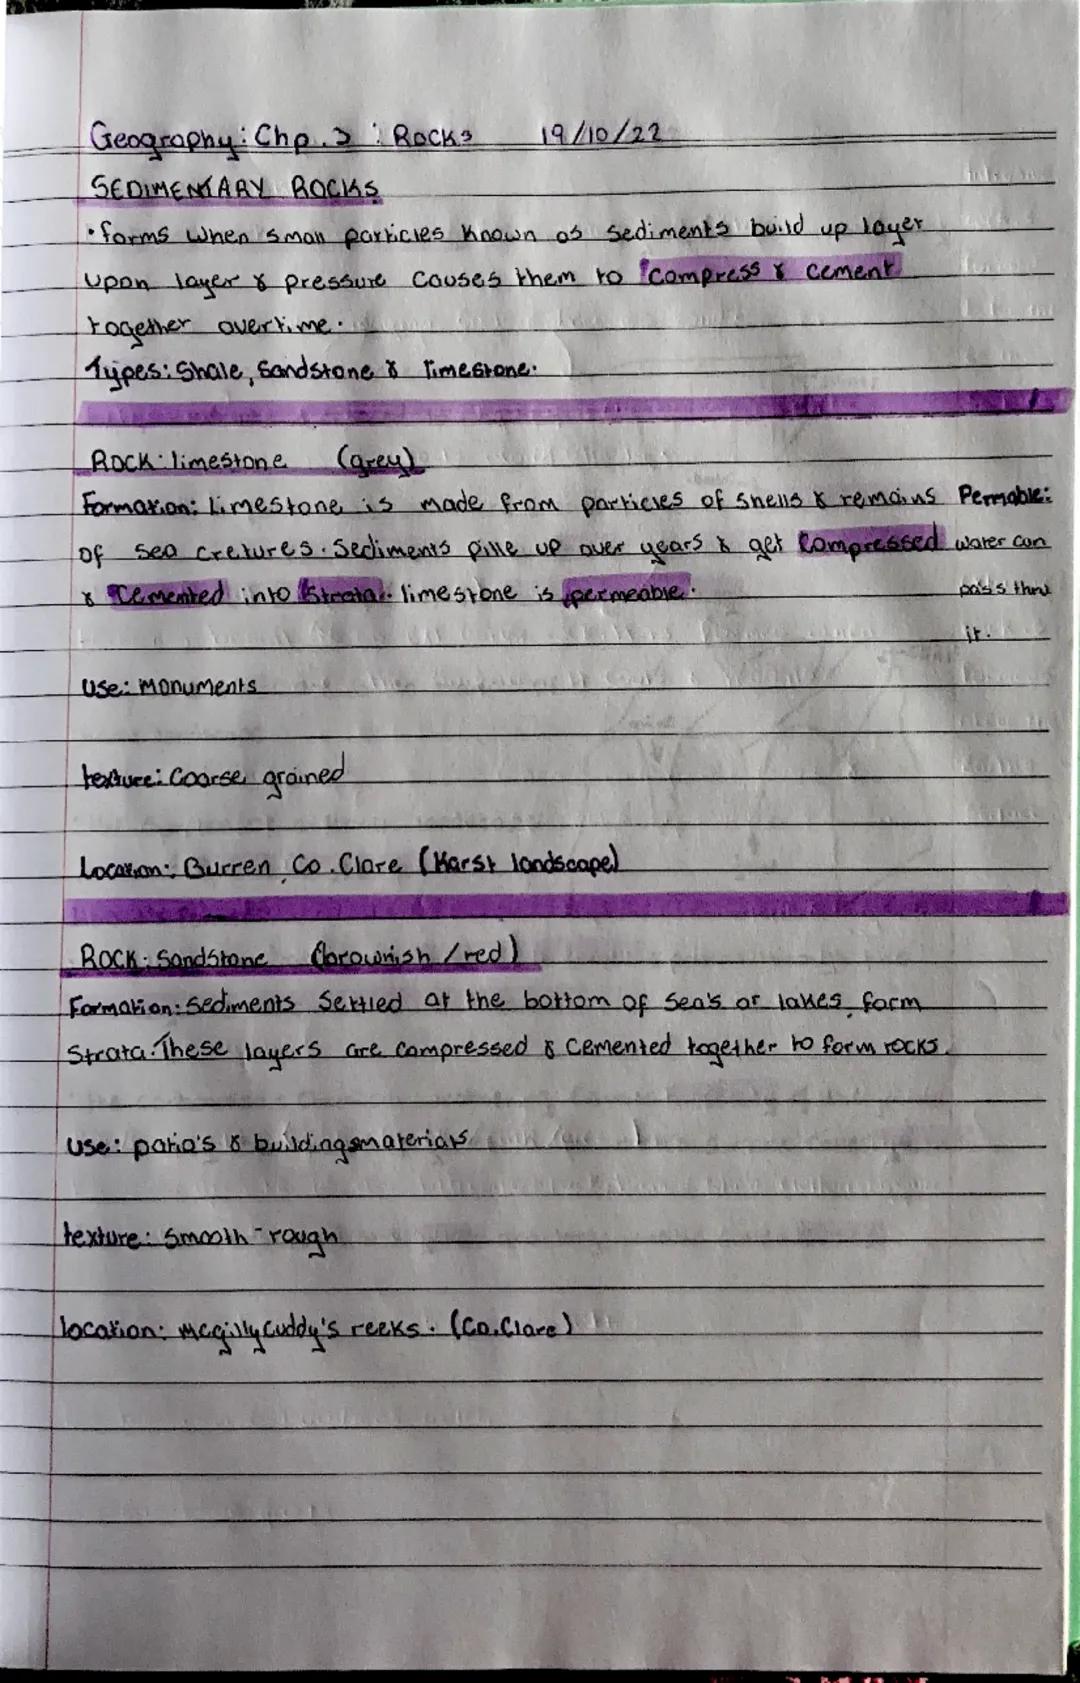 Geography: Chp. 3 : Rocks 19/10/22
SEDIMENTARY ROCKS
• forms when small particles known as sediments build up layer
upon layer & pressure causes them to compress & cement
together overtime.
Types: Shale, Sandstone & limestone.
ROCK: limestone (grey)
Formation: Limestone is made from particles of shells & remains Permable:
of sea cretures. Sediments pille up over years & get compressed water can
& cemented into strata. limestone is permeable. pass thru
it.
Use: Monuments
texture: Coarse grained
Location: Burren, Co. Clare (Karst landscape)
ROCK: Sandstone (brownish / red)
Formation: Sediments settled at the bottom of sea's or lakes, form
Strata. These layers are compressed & cemented together to form rocks.
Use: patio's & buildingsmaterials
texture: smooth - rough
location: McgillyCuddy's reeks. (Co. Clare)